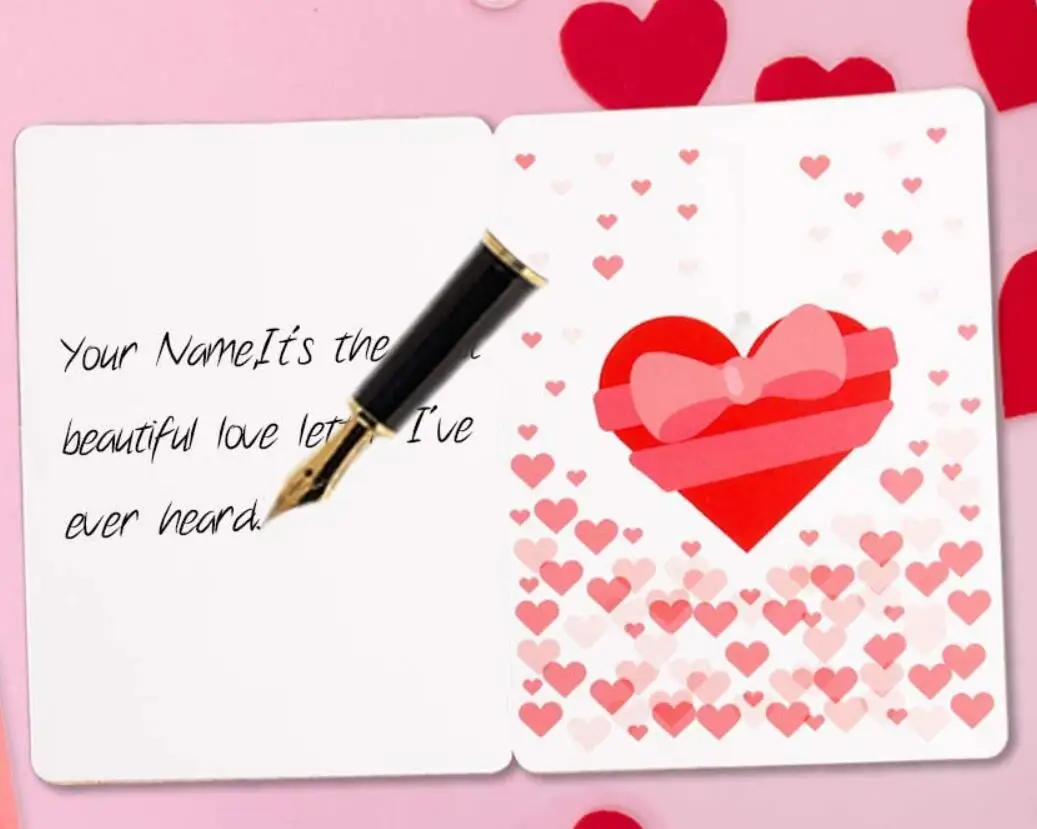 Your Name,It's the
beautiful love I've
ever heard.